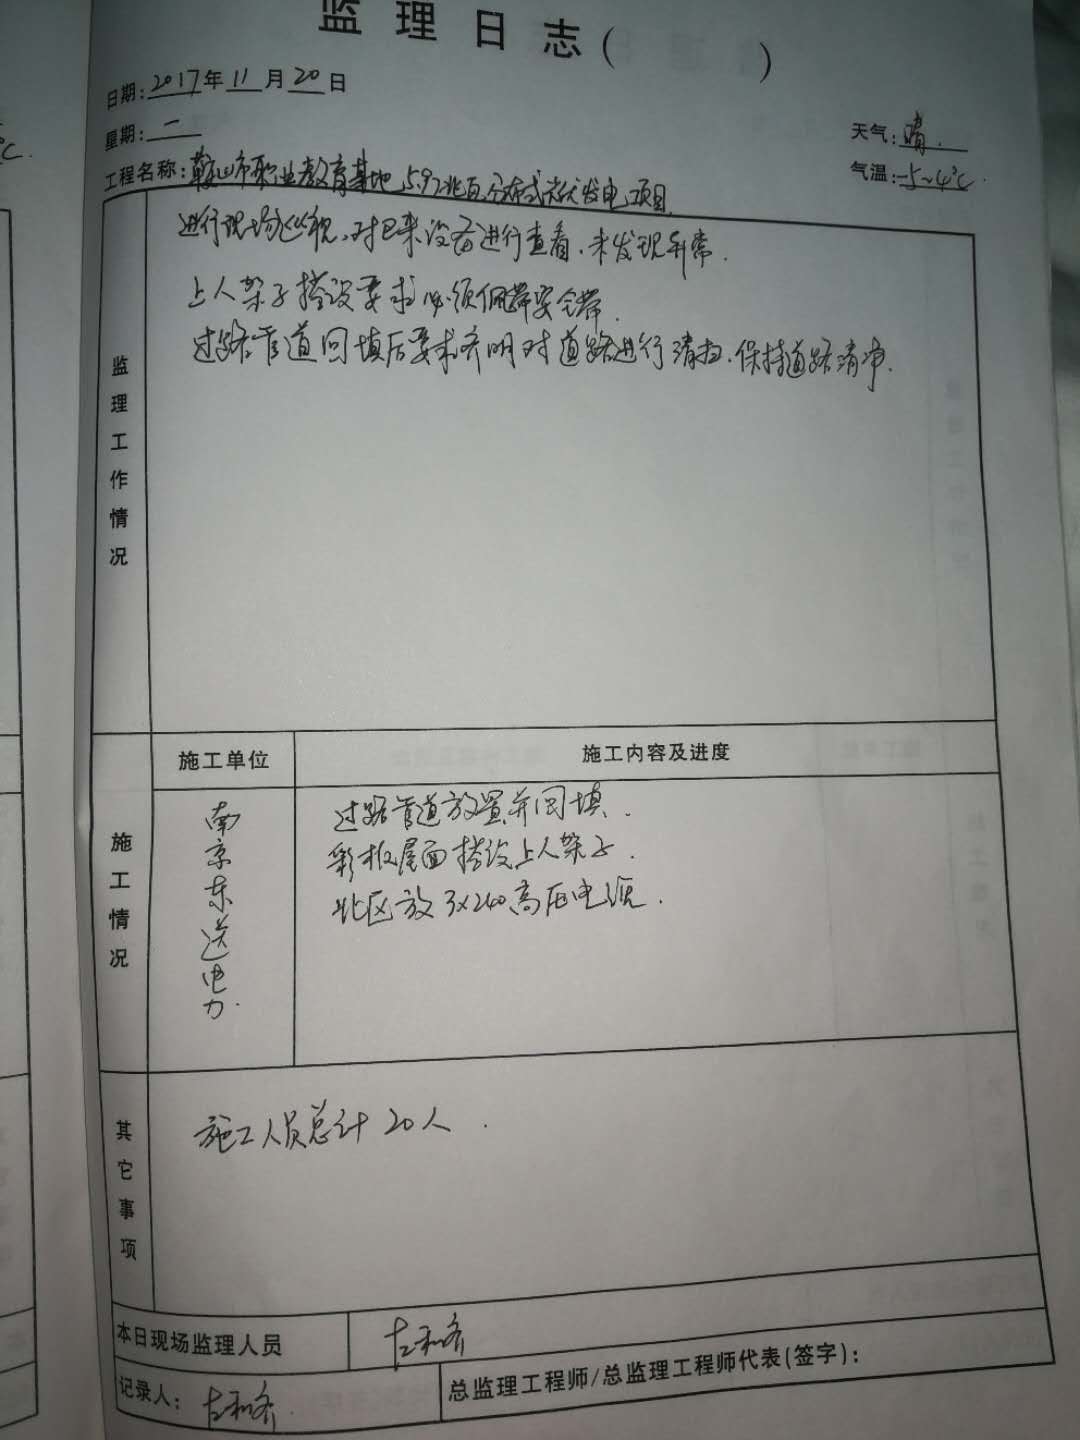 监理日志( )
日期:2017年11月20日
星期:一
天气:晴.
工程名称:鞍山市职业教育基地5.97兆瓦分布式光伏发电项目
气温:-5~4℃.
监理工作情况
进行现场巡视,对已来设备进行查看.未发现异常.
上人架子搭设要求必须佩带安全带.
过路管道回填后要求齐明对道路进行清扫.保持道路清净.
施工情况
施工单位
施工内容及进度
南京东送电力.
过路管道放置并回填.
彩板屋面搭设上人架子.
北区放3x240高压电缆.
其它事项
施工人员总计20人.
本日现场监理人员
记录人:
总监理工程师/总监理工程师代表(签字):